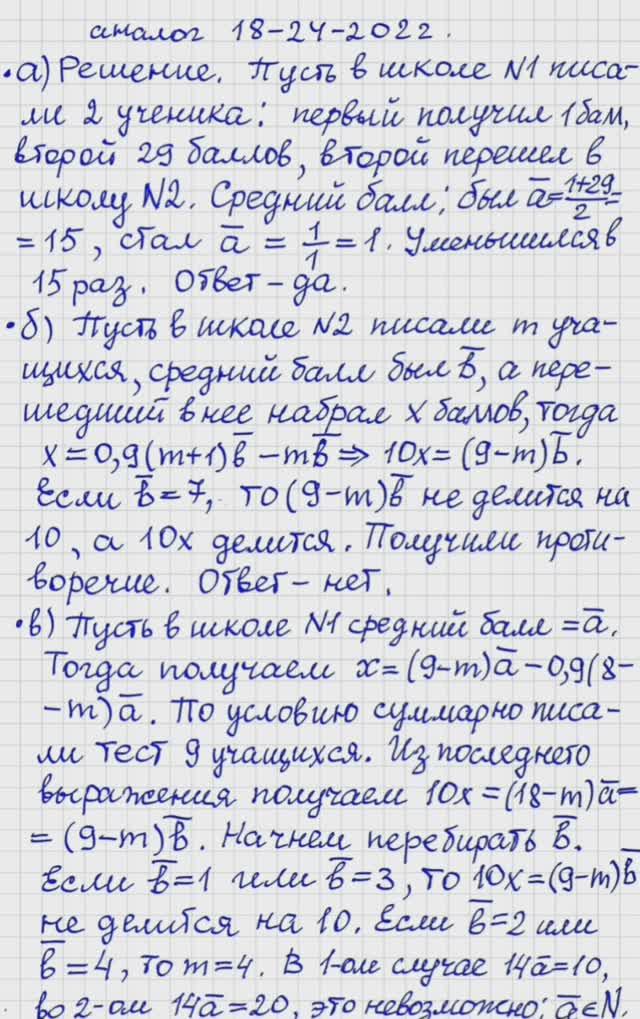 аналог 18-24-2022.
•а) Решение. Пусть в школе N1 писа-
ли 2 ученика: первый получил 1 балл,
второй 29 баллов, второй перешел в
школу N2. Средний балл: был a̅=(1+29)/2=
=15, стал a̅ = 1/1 = 1. Уменьшился в
15 раз. Ответ – да.
•б) Пусть в школе N2 писали m уча-
щихся, средний балл был b̅, а пере-
шедший в нее набрал x баллов, тогда
x=0,9(m+1)b̅ -mb̅ ⇒ 10x=(9-m)b̅.
Если b̅=7, то (9-m)b̅ не делится на
10, а 10x делится. Получили проти-
воречие. Ответ – нет.
•в) Пусть в школе N1 средний балл =a̅.
Тогда получаем x=(9-m)a̅ -0,9(8-
-m)a̅. По условию суммарно писа-
ли тест 9 учащихся. Из последнего
выражения получаем 10x=(18-m)a̅=
=(9-m)b̅. Начнем перебирать b̅.
Если b̅=1 или b̅=3, то 10x=(9-m)b̅
не делится на 10. Если b̅=2 или
b̅=4, то m=4. В 1-ом случае 14a̅=10,
во 2-ом 14a̅=20, это невозможно: a̅∈N.